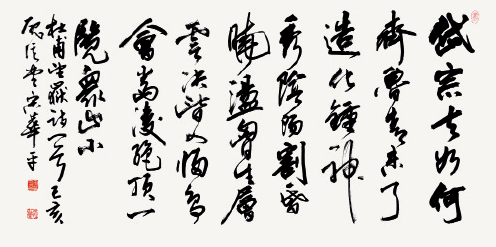 岱宗夫如何
齊魯青未了
造化鍾神
秀陰陽割昏
曉盪胷生層
雲決眥入歸鳥
會當凌絕頂一
覽衆山小
杜甫望嶽詩一首己亥
宋華平